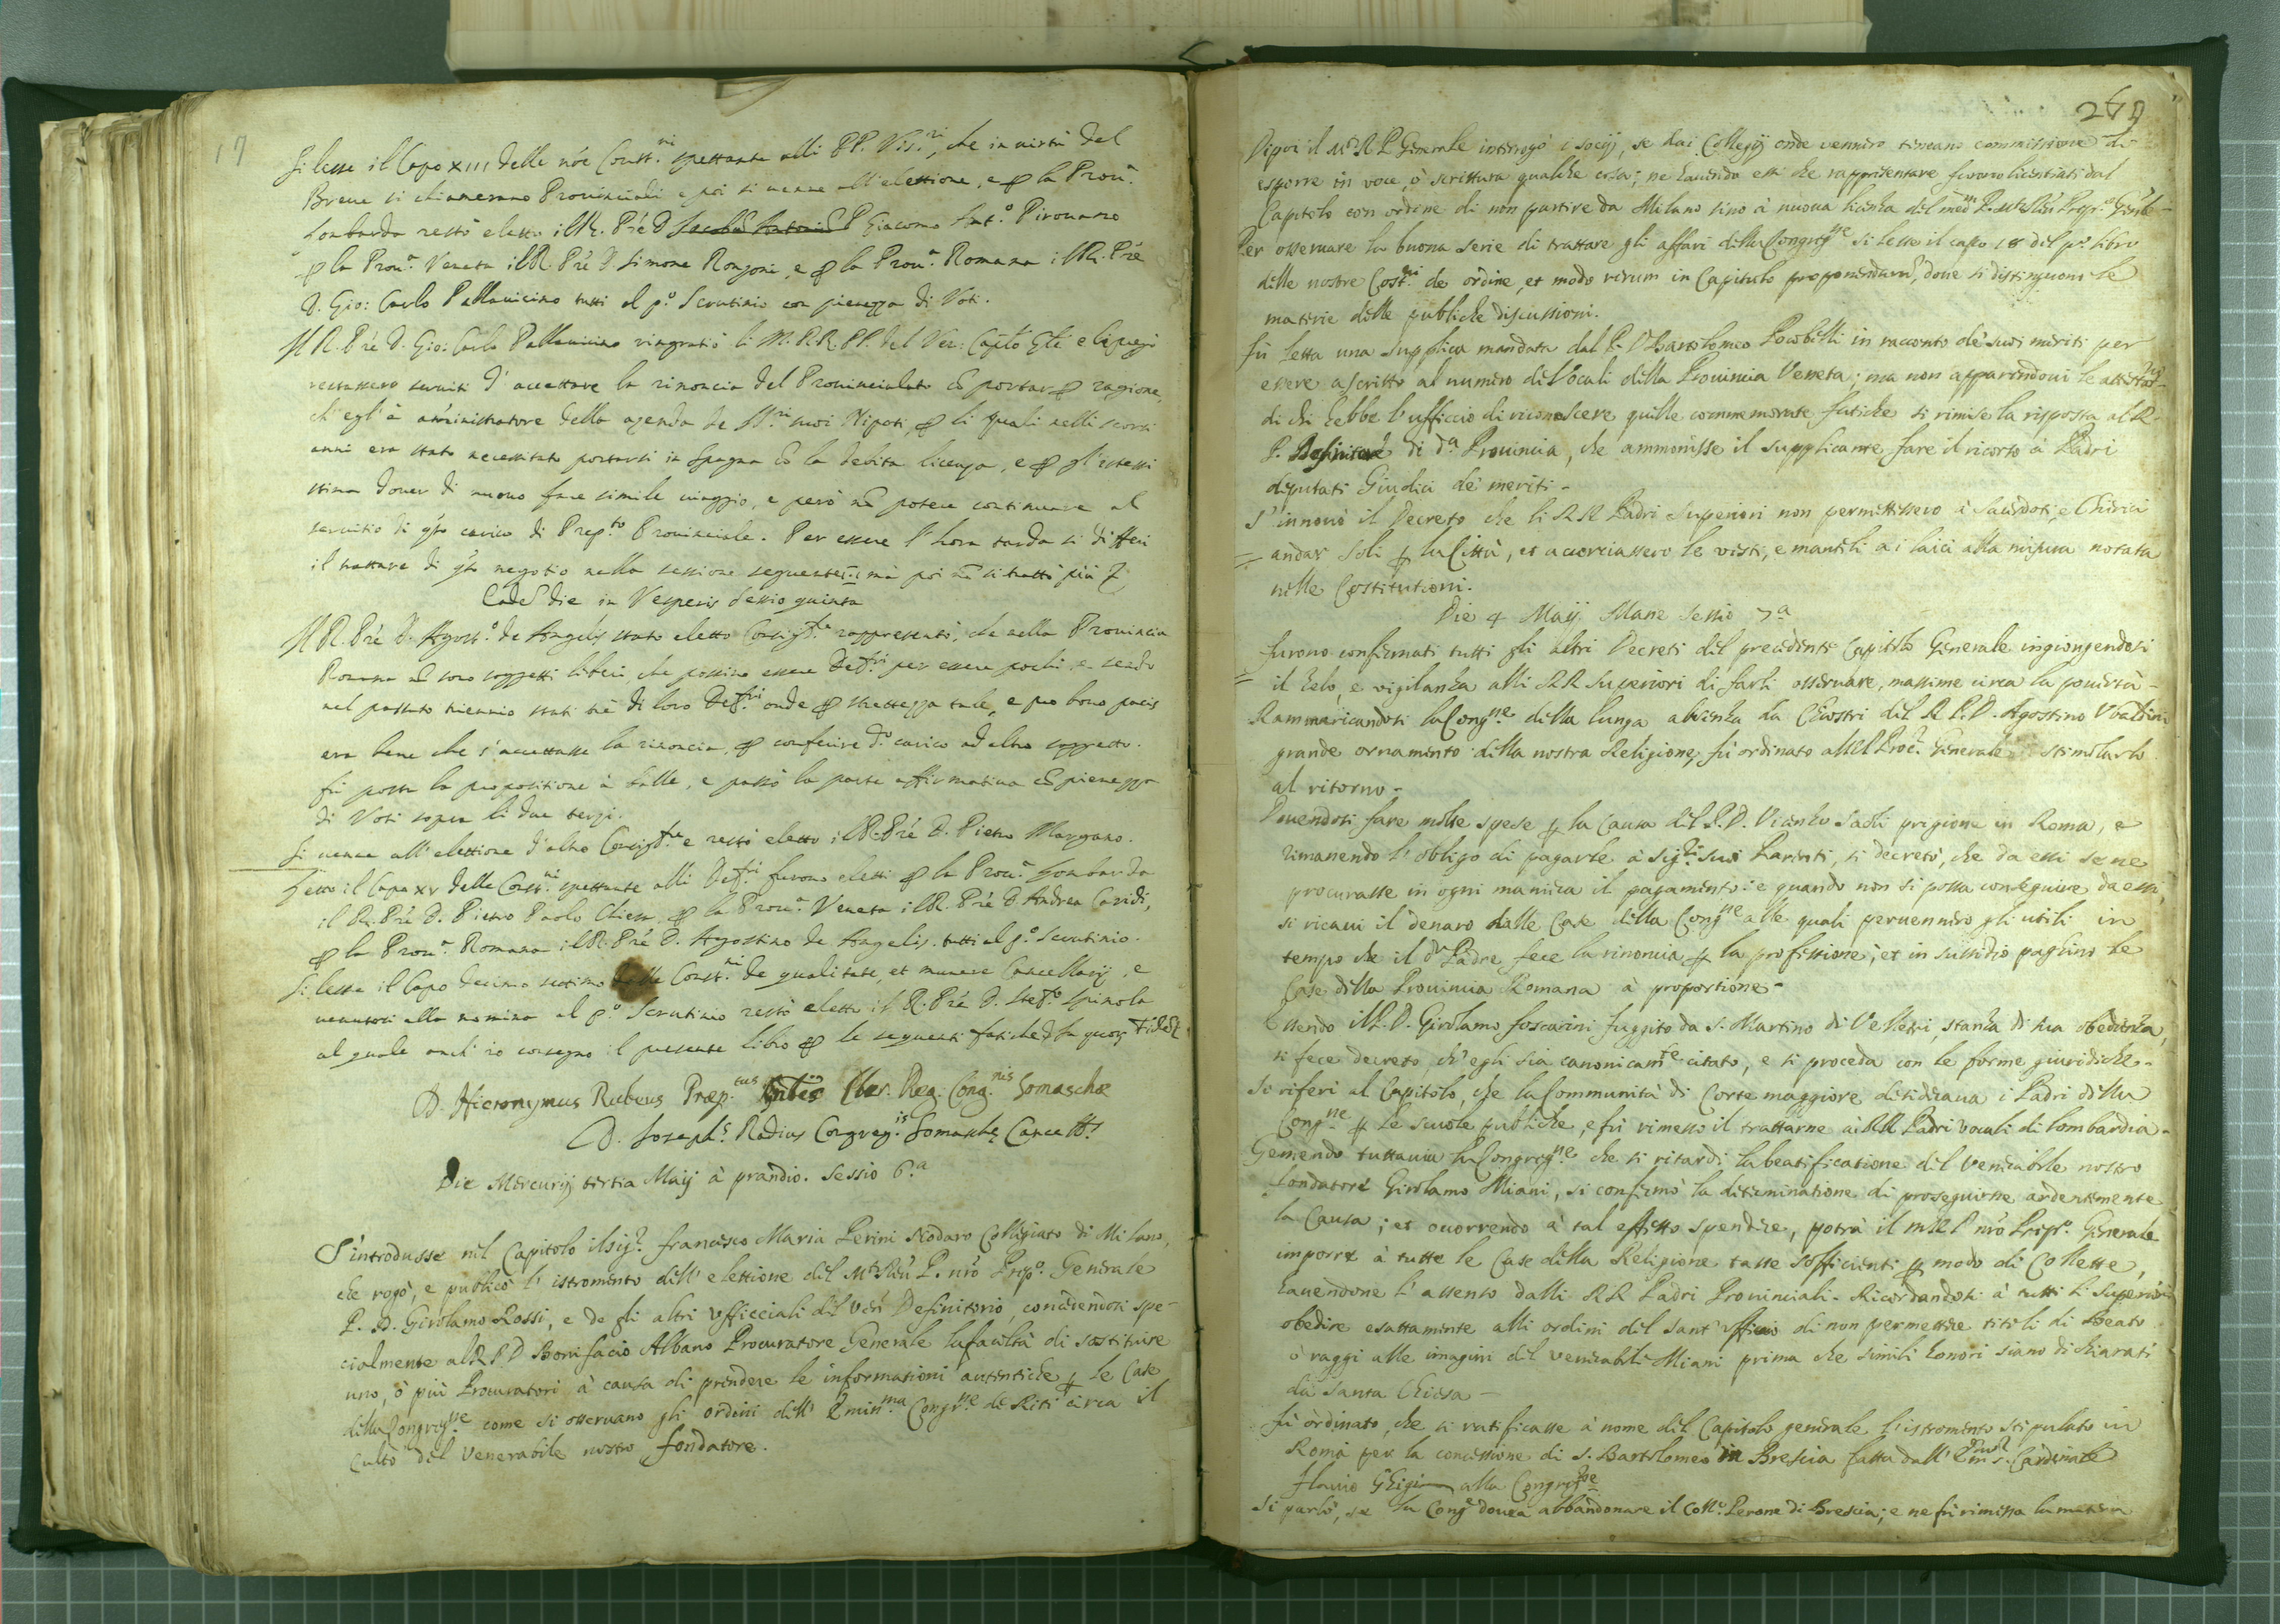 17
Si lesse il Capo XIII delle nr̃e Const.ni spettante alli PP. Vis.ri, che in virtù del
Breve si chiamerano Provinciali e poi si venne all'elettione, e ꝑ la Prov.a
Lombarda restò eletto il R. Prẽ D. Giacomo Ant.o Pirovano
ꝑ la Prov.a Veneta il R. Prẽ D. Simone Ronzoni, e ꝑ la Prov.a Romana il R. Prẽ
D. Gio: Carlo Pallavicino tutti al p.o Scrutinio con pienezza di Voti.
Il R. Prẽ D. Gio: Carlo Pallavicino ringratiò li M. RR. PP. del Ven: Capito Gĩle e li pregò
restassero serviti d'accettare la rinoncia del Provincialato ꝑ ragione,
ch'egl'è amministratore della azenda de SS.ri suoi Nipoti, ꝑ li quali nelli scorsi
anni era stato necessitato portarsi in Spagna cõ la debita licenza, e ꝑ gl'istessi
stima dover di nuovo fare simile viaggio, e però nõ potere continuare al
servitio di q̃sto carico di Prep.to Provinciale. Per essere l'hora tarda si differì
il trattare di q̃sto negotio nella sessione seguente: mà poi nõ si trattò più
Eadẽ die in Vesperis Sessio quinta
Il R. Prẽ D. Agost.o de Angelis stato eletto Consig.re rappresentò, che nella Provincia
Romana nõ sono soggetti liberi, che possino essere Def.ri per essere pochi, e sendo
nel passato triennio stati trè di loro Def.ri onde ꝑ strettezza tale, e pro bono pacis
era bene che s'accettasse la rinoncia, ꝑ conferire d.o carico ad altro soggetto.
fù posta la propositione à balle, e passò la parte affirmativa cõ pienezza
di Voti sopra li due terzi.
Si venne all'elettione d'altro Consig.re e restò eletto il R. Prẽ D. Pietro Morgano.
Letto il Capo XV delle Const.ni spettante alli Def.ri furono eletti ꝑ la Prov.a Lombarda
il R. Prẽ D. Pietro Paolo Chiesa, ꝑ la Prov.a Veneta il R. Prẽ D. Andrea Cavidi,
ꝑ la Prov.a Romana il R. Prẽ D. Agostino de Angelis. tutti al p.o Scrutinio.
Si lesse il Capo decimo settimo delle Const.ni de qualitate, et munere Cancellarij, e
venutosi alla nomina al p.o Scrutinio restò eletto il R. Prẽ D. Stef.o Spinola
al quale anch'io consegno il presente libro ꝑ le seguenti fatiche. In quor fidem
D. Hieronymus Rubeus Præp.tus Gñlis Cler. Reg. Cong.nis Somaschæ
D. Joseph.s Radius Congreg.is Somaschę Cancell.s
Die Mercurij tertia Maij à prandio. Sessio 6.a
S'introdusse nel Capitolo il Sig.r Francesco Maria Perini Nodaro Collegiato di Milano,
che rogò, e publicò l'istromento dell'elettione del M.to Reũ P. nr̃o Prep.o Generale
P. D. Girolamo Rossi, e de gli altri Ufficciali del Veñ Definitorio, concedendosi spe-
cialmente al R. P. D Bonifacio Albano Procuratore Generale la facultà di sostituire
uno, ò più Procuratori à causa di prendere le informationi autentiche ꝑ le Case
della Congreg.ne come si osservano gli ordini dell'Emin.ma Congr.ne de Riti circa il
culto del Venerabile nostro fondatore.
Dipoi il M.o R. P. Generale interrogò i socij, se dai Collegij onde vennero tenean commissione di
esporre in voce, ò scrittura qualche cosa; ne havendo essi che rappresentare furono licentiati dal
Capitolo con ordine di non partire da Milano sino à nuova licenza del med.o P. M.to Reũ Prep.o Gñle-
Per osservare la buona serie di trattare gli affari della Congreg.ne si lesse il capo 18 del p.o libro
delle nostre Cost.ni de ordine, et modo rerum in Capitulo proponendarũ, dove si distinguono le
materie delle publiche discussioni.
Fù letta una supplica mandata dal P. D Bartolomeo Locobelli in racconto de suoi meriti per
essere ascritto al numero de Vocali della Provincia Veneta; ma non apparendovi le attestat.ni
di chi hebbe l'ufficcio di riconoscere quelle commemorate fatiche si rimise la risposta al R.
P. Definitore di d.a Provincia, che ammonisse il supplicante fare il ricorso à Padri
deputati Giudici de meriti-
S'innovò il Decreto che li RR Padri Superiori non permettessero à Sacerdoti, e Chierici
andar soli ꝑ la Città, et accorciassero le vesti, e mantelli a i laici alla misura notata
nelle Costitutioni.
Die 4 Maij Mane Sessio 7a
Furono confirmati tutti gli altri Decreti del precedente Capitolo Generale ingiongendosi
il zelo, e vigilanza alli RR Superiori di farli osservare, massime circa la povertà-
Rammaricandosi la Cong.ne della lunga absenza da Chiostri del R P. D. Agostino Ubaldini
grande ornamento della nostra Religione, fù ordinato al R P Proc.r Generale stimolarlo
al ritorno-
Dovendosi fare molte spese ꝑ la Causa del P. D. Vicenzo Saoli prigione in Roma, e
rimanendo l'obligo di pagarle à Sig.ri suoi Parenti, si decretò, che da essi se ne
procurasse in ogni maniera il pagamento: e quando non si possa conseguire da essi,
si ricavi il denaro dalle Case della Cong.ne alle quali pervennero gli utili in
tempo che il d.o Padre fece la rinoncia ꝑ la professione; et in sussidio paghino le
Case della Provincia Romana à proportione-
Essendo il P. D. Girolamo Foscarini fuggito da S. Martino di Velletri, stanza di sua obedienza,
si fece decreto, ch'egli sia canonicam.te citato, e si proceda con le forme giuridiche-
Si riferì al Capitolo, che la Communità di Corte maggiore desiderava i Padri della
Cong.ne ꝑ le scuole publiche, e fù rimesso il trattarne ài RR Padri vocali di Lombardia-
Gemendo tuttavia la Congreg.ne che si ritardi la beatificatione del Venerabile nostro
Fondatore Girolamo Miani, si confirmò la determinatione di proseguirne ardentemente
la Causa; et occorrendo à tal effetto spendere, potrà il M R P nr̃o Prep.o Generale
imporre à tutte le Case della Religione tasse sofficienti ꝑ modo di Collette,
havendone l'assenso dalli RR Padri Provinciali- Ricordandosi à tutti li Superiori
obedire esattamente alli ordini del Sant'Officio di non permettere titoli di Beato
ò raggi alle imagini del Venerabile Miani prima che simili honori siano dichiarati
da Santa Chiesa-
Fù ordinato, che si ratificasse à nome del Capitolo generale l'istromento stipulato in
Roma per la concessione di S. Bartolomeo in Brescia fatta dall'Em.o S. Cardinale
Flavio Ghigi alla Congreg.ne
Si parlò, se la Cong.e doveva abbandonare il Coll.o Perone di Brescia; e ne fù rimessa la materia